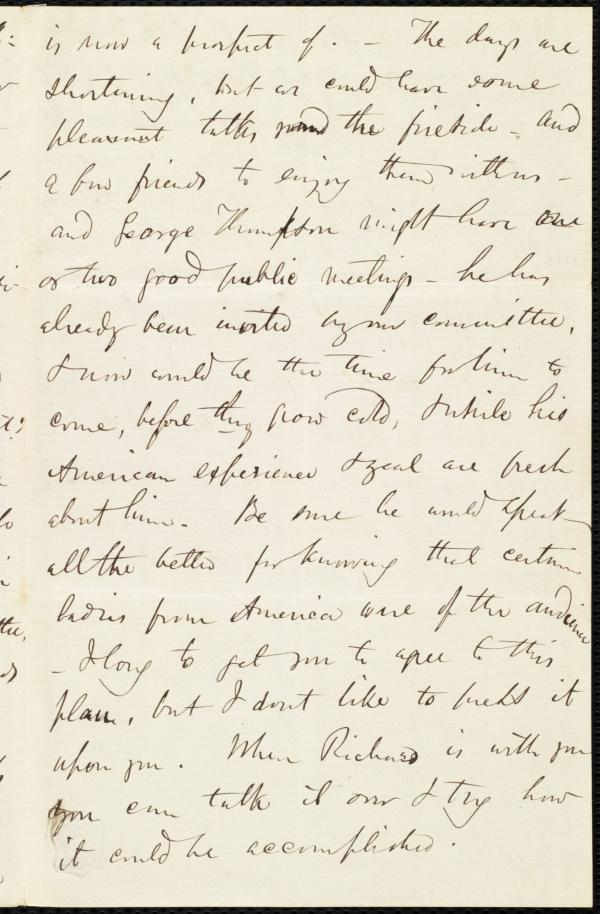 is now a prospect of. – The days are
shortening, but we could have some
pleasant talks round the fireside – and
a few friends to enjoy them with us –
and George Thompson might have one
or two good public meetings – he has
already been invited by our committee,
& now would be the time for him to
come, before they grow cold, & while his
American experience & zeal are fresh
about him. Be sure he would speak
all the better for knowing that certain
ladies from America were of the audience
– I long to get you to agree to this
plan, but I dont like to press it
upon you. When Richard is with you
you can talk it over & try how
it could be accomplished.